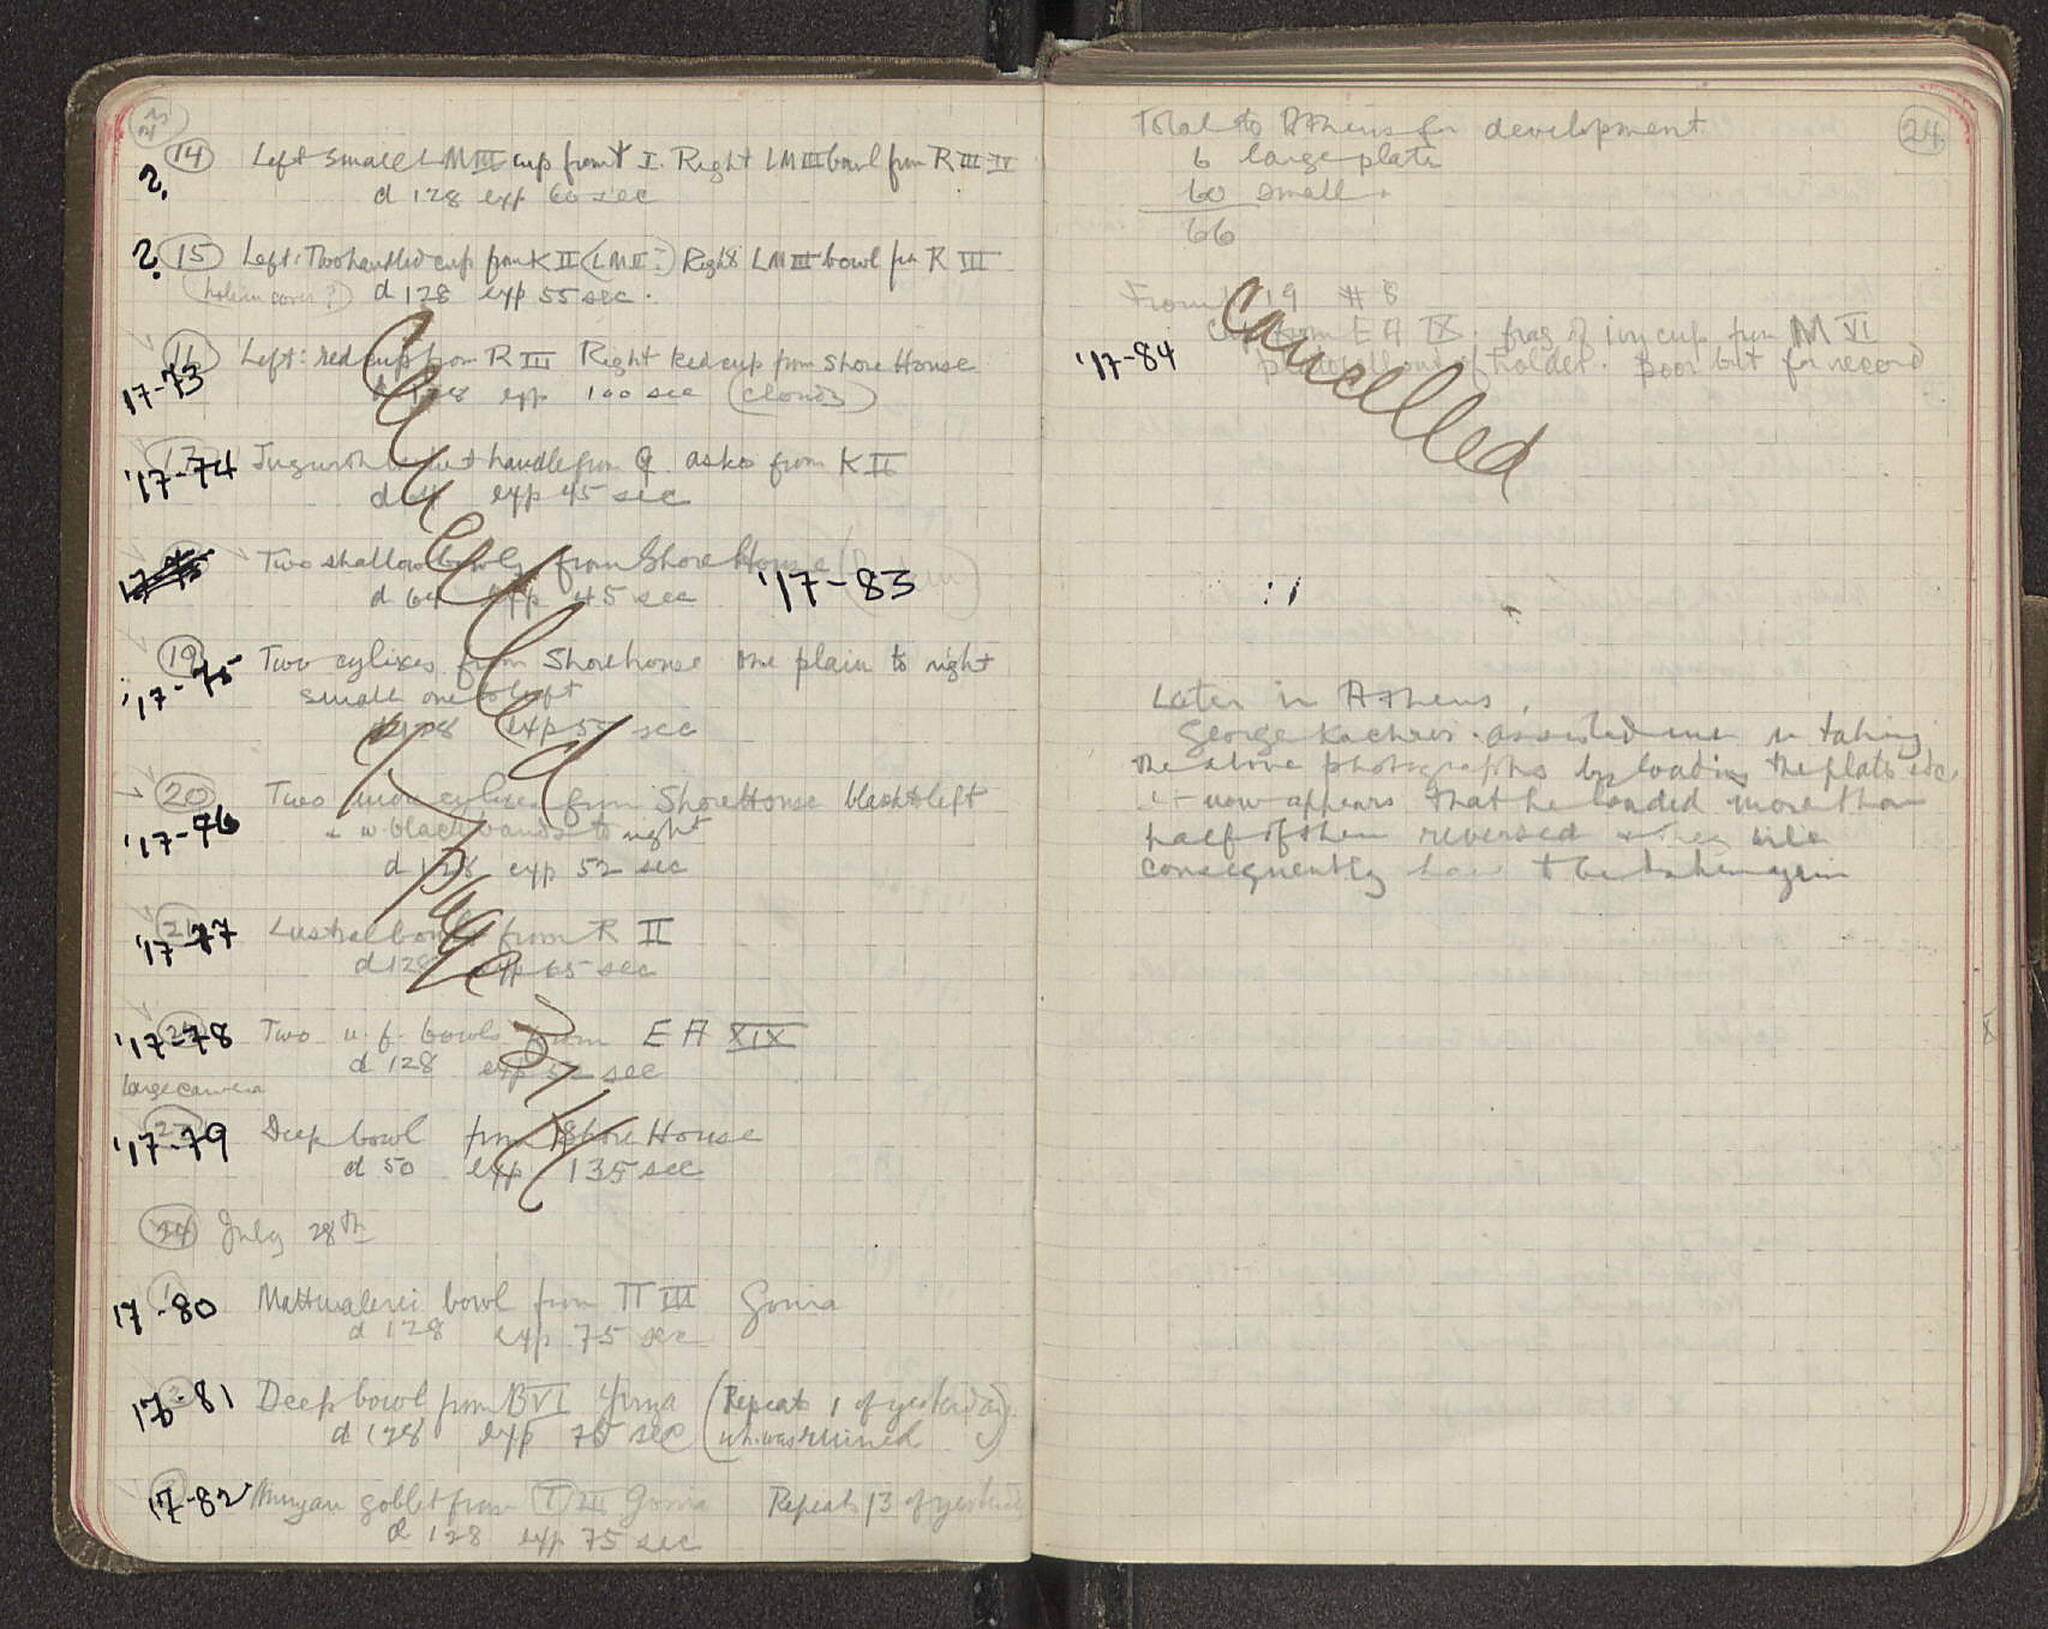 23
? 14 Left small LM III cup from T I. Right LM III bowl from R III-IV
d 128 exp 60 sec
? 15 Left: Two handled cup from K II (LM II?) Right LM III bowl from R III
(hole in cover?) d 128 exp 55 sec.
16 Left: red cup from R III Right Red cup from Shore House
17-73 d 128 exp 100 sec (clouds)
17
'17-74 handle from askos from K II
d 64 exp 45 sec
17-75 Two shallow bowls from Shore House
d 64 exp 45 sec '17-83
19 Two cylixes from Shorehouse one plain to right
'17-75 small one to left
d 128 exp 55 sec
20 Two more cylixes from Shore House black to left
'17-76 + w. black bands to right
d 128 exp 52 sec
21
'17-77 Lustral bowl from R II
d 128 exp 65 sec
'17-78 Two u.f. bowls from EA XIX
d 128 exp 52 sec
large camera
23
'17-79 Deep bowl from Shore House
d 50 exp 135 sec
Cancelled
see
page
24 July 28th
1
17-80 Mattmalerei bowl from Π III Gonia
d 128 exp 75 sec
2
17-81 Deep bowl from B VI Yiriza (Repeats 1 of yesterday
d 128 exp 75 sec wh. was ruined)
3
17-82 Minyan goblet from III Gonia Repeats 13 of yesterday
d 128 exp 75 sec
24
Total to Athens for development
6 large plate
60 small
66
From 19 # 8
Cup from EA IX. frag of ivy cup from M VI
'17-84 out of holder. poor but for record
Cancelled
Later in Athens,
George Kachros assisted me in taking
the above photographs by loading the plates etc
it now appears that he loaded more than
half of them reversed
consequently have to be taken again